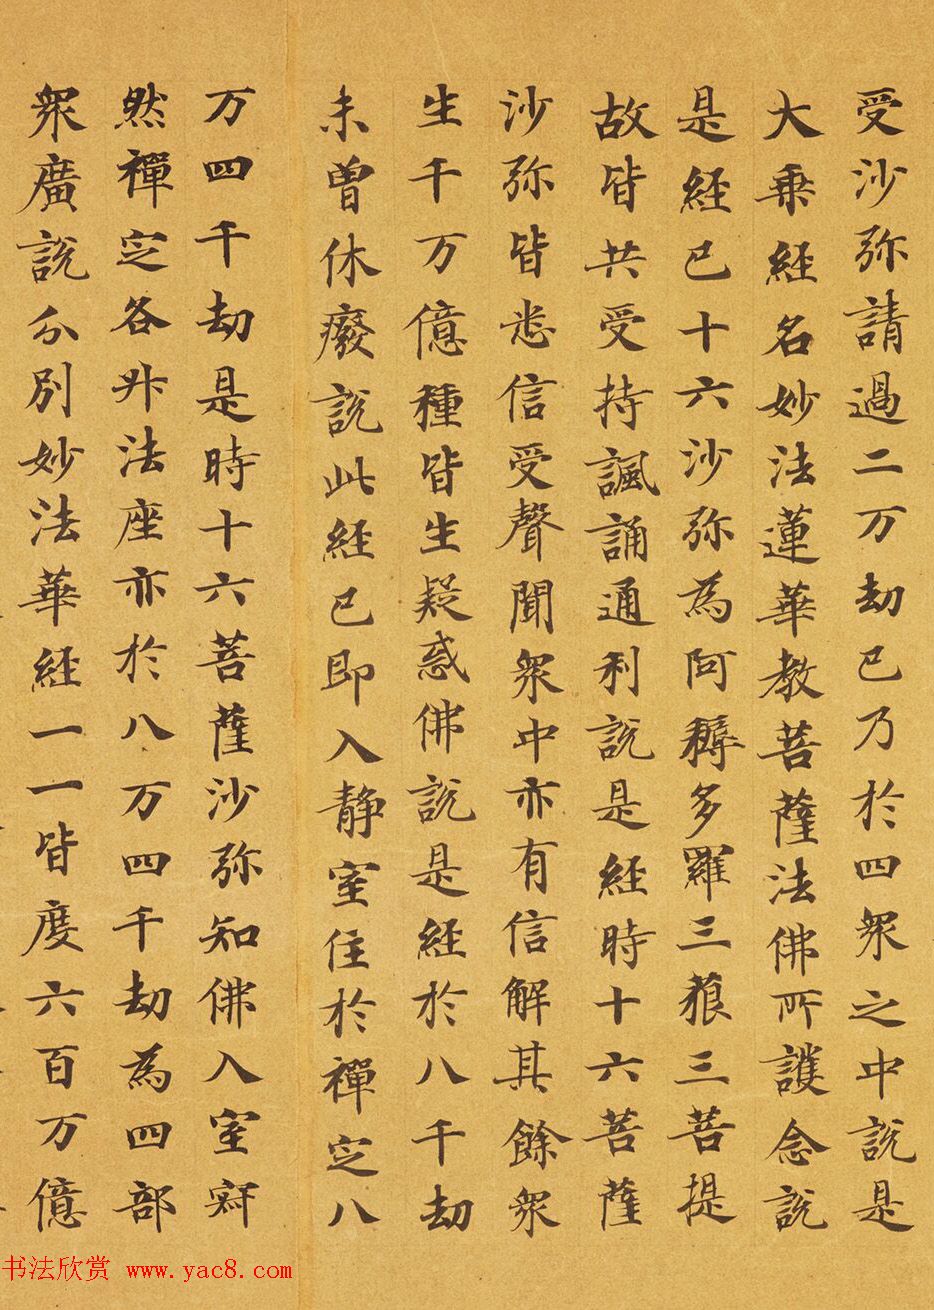 受沙弥請過二万劫已乃於四衆之中說是
大乗経名妙法蓮華教菩薩法佛所護念說
是経已十六沙弥為阿耨多羅三藐三菩提
故皆共受持諷誦通利說是経時十六菩薩
沙弥皆悉信受聲聞衆中亦有信解其餘衆
生千万億種皆生疑惑佛說是経於八千劫
未曽休癈說此経已即入静室住於禪定八
万四千劫是時十六菩薩沙弥知佛入室寂
然禪定各升法座亦於八万四千劫為四部
衆廣說分別妙法華経一一皆度六百万億
书法欣赏 www.yac8.com